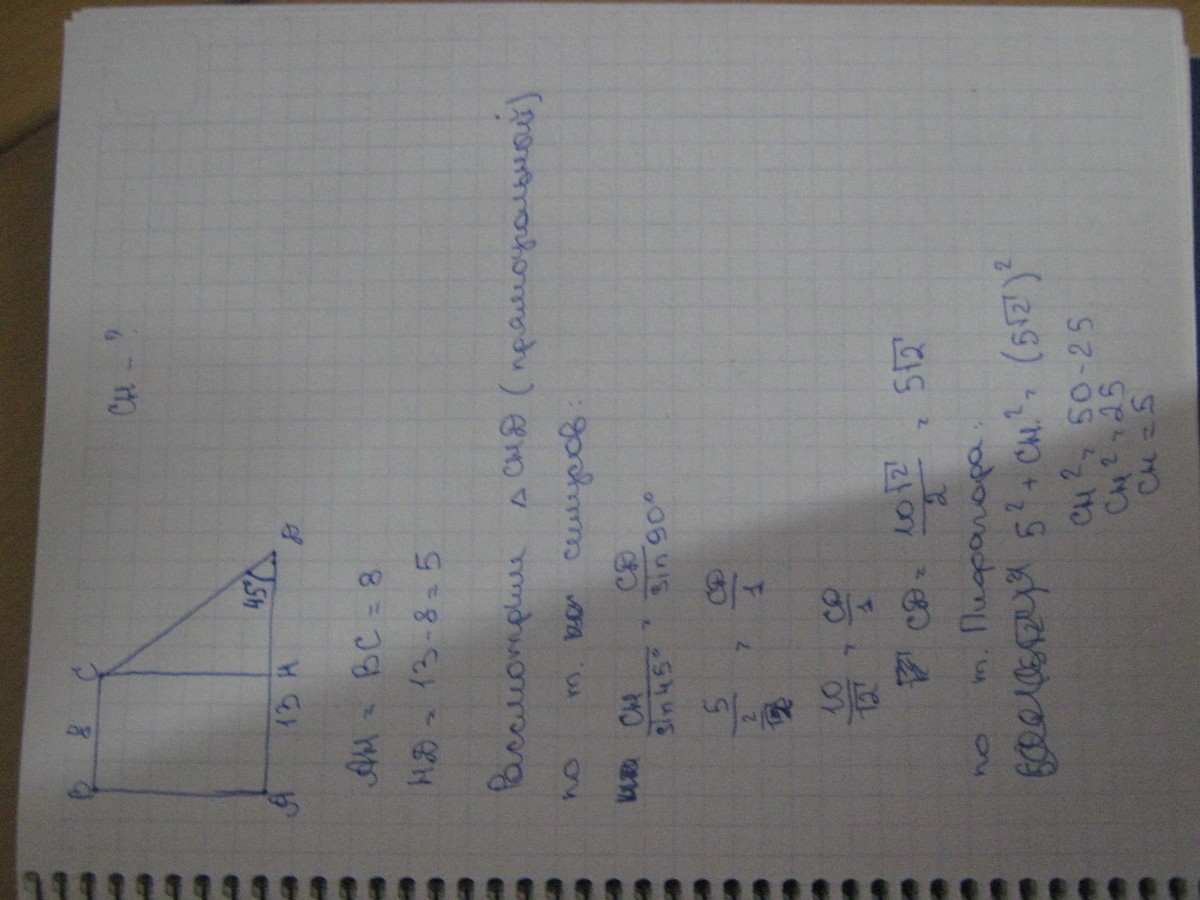 CH - ?
B 8 C
45°
A 13 H D
AH = BC = 8
HD = 13 - 8 = 5
Рассмотрим △ CHD (прямоугольной)
по т. синусов:
CH/sin45° = CD/sin90°
5/(√2/2) = CD/1
10/√2 = CD/1
CD = 10√2/2 = 5√2
по т. Пифагора:
5² + CH² = (5√2)²
CH² = 50 - 25
CH² = 25
CH = 5